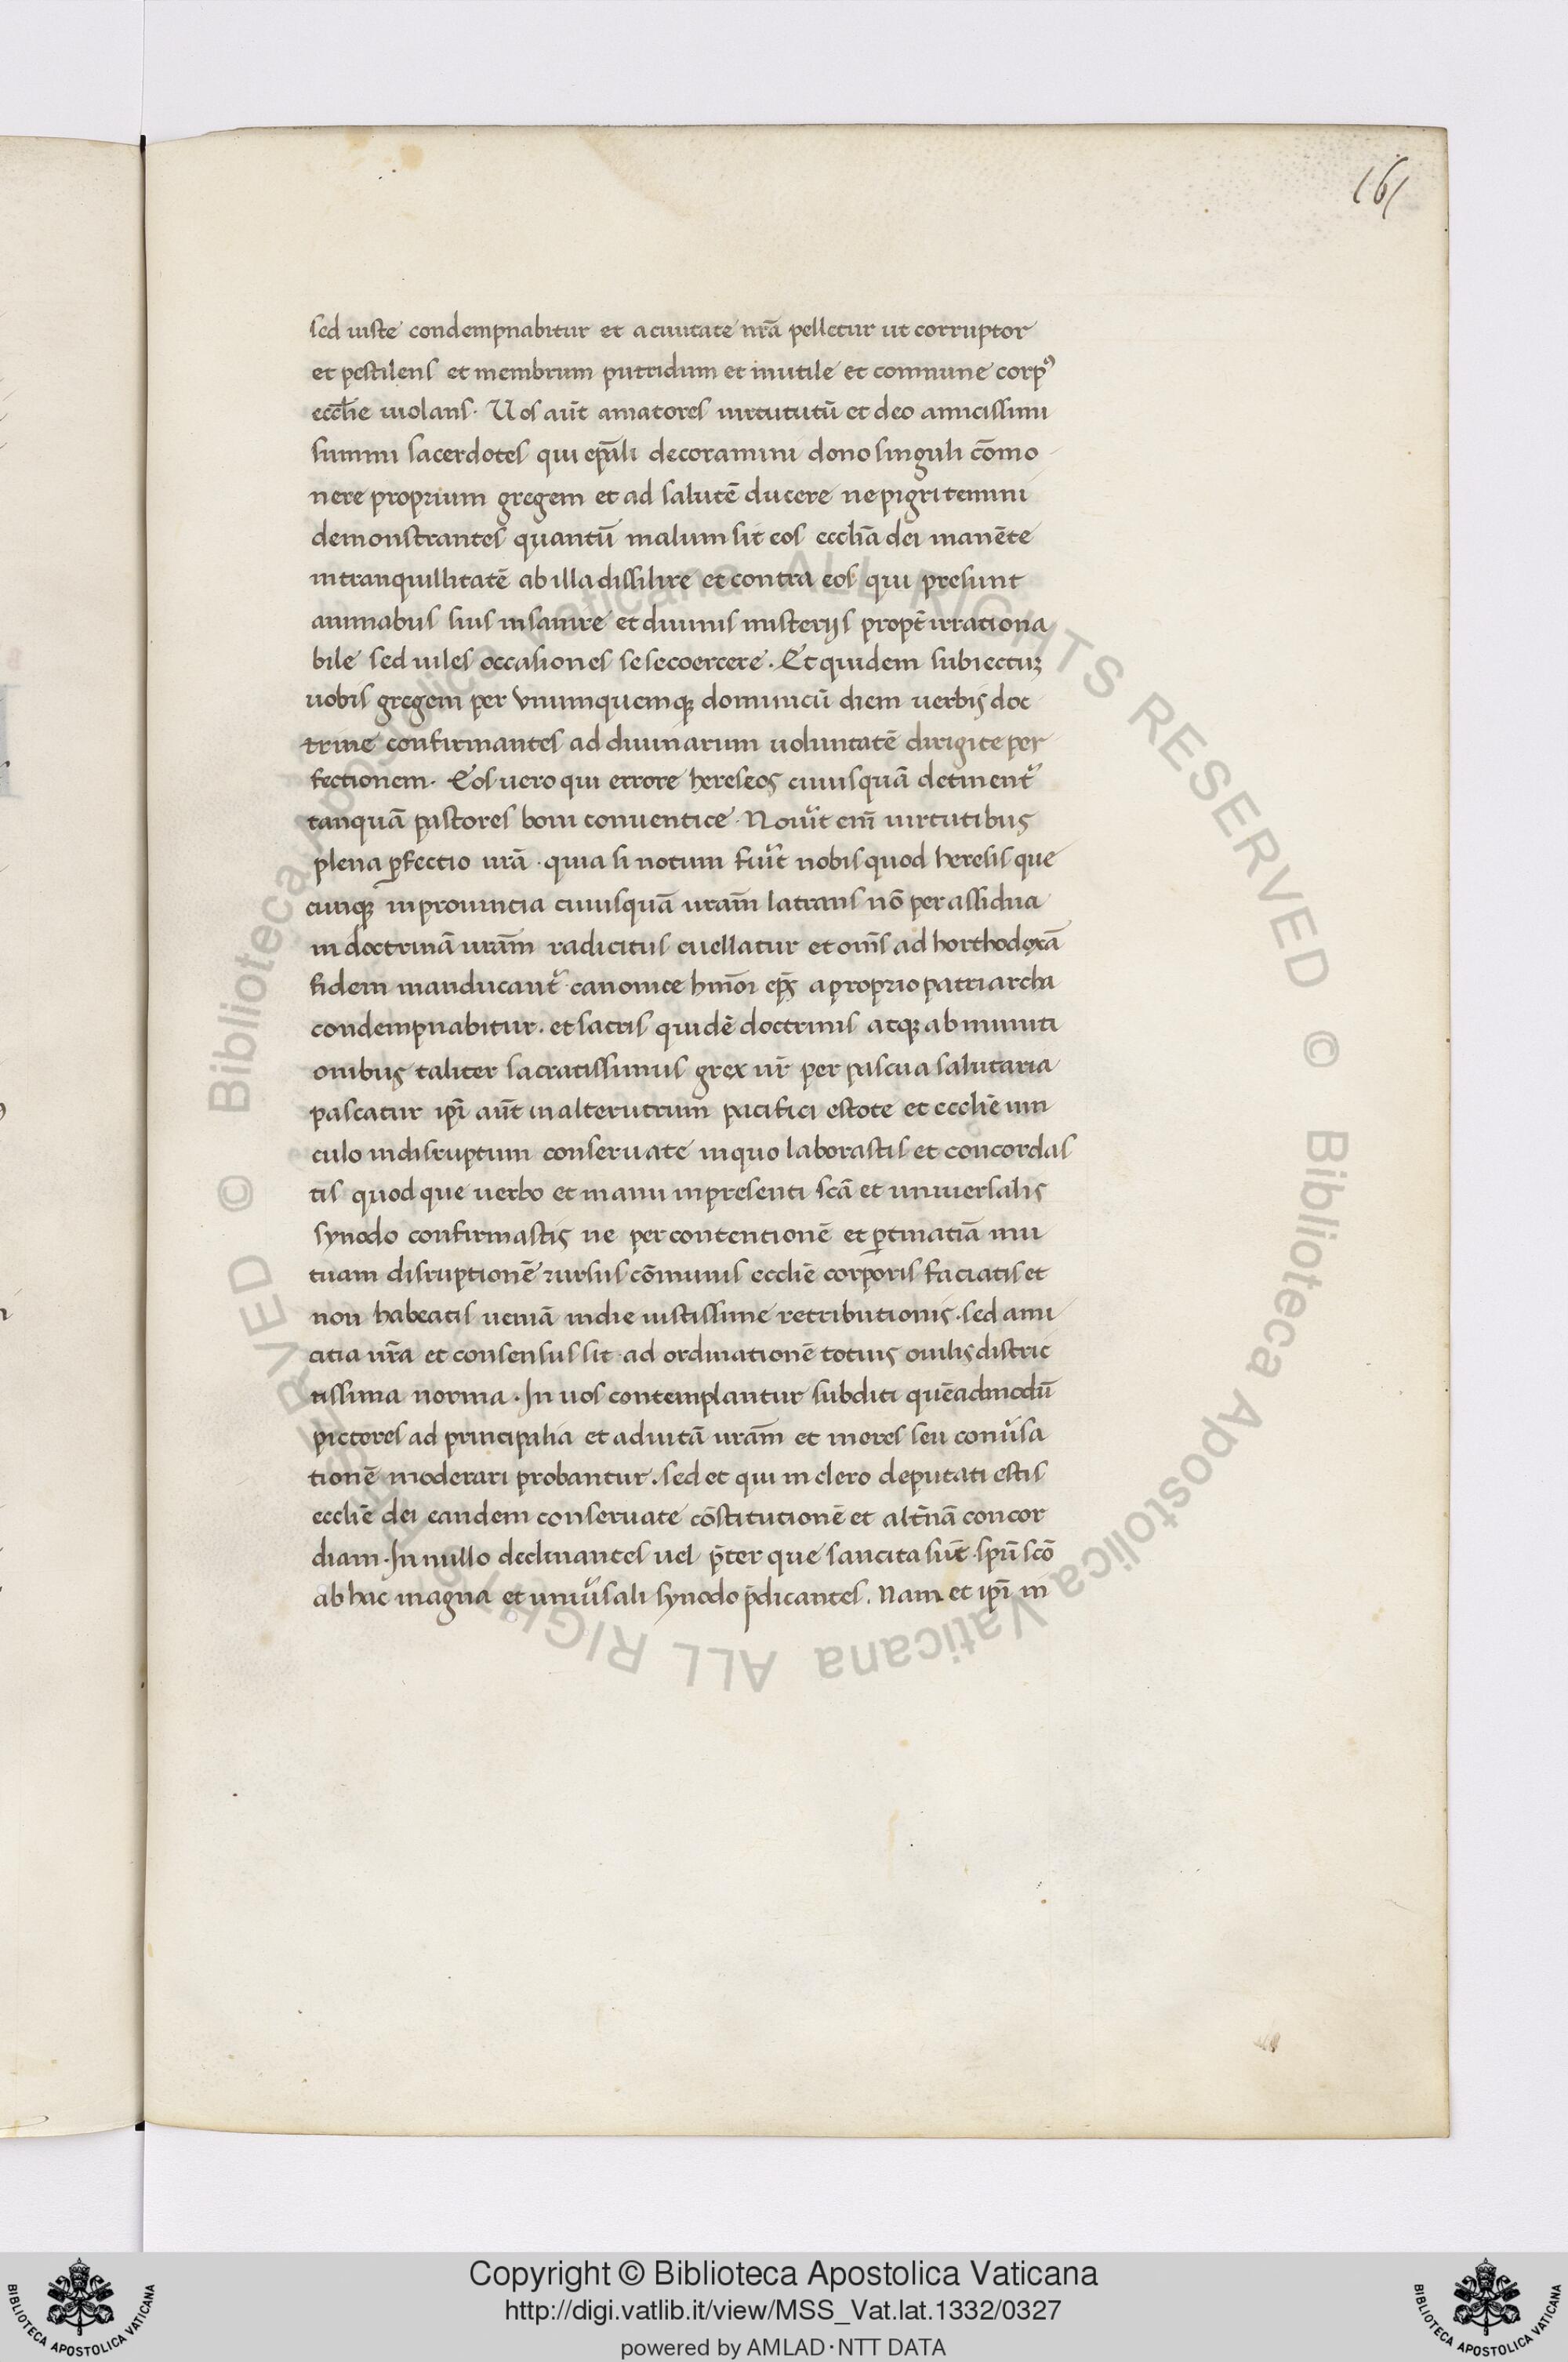 161
sed iuste condempnabitur et a ciuitate nrã pelletur ut corruptor
et pestilens et membrum putridum et inutile et commune corpꝰ
eccłie uiolans. Uos aũt amatores uirtututũ et deo amicissimi
summi sacerdotes qui ep̃ali decoramini dono singuli cõmo
nere proprium gregem et ad salutẽ ducere ne pigritemini
demonstrantes quantũ malum sit eos ecclĩa dei manẽte
in tranquillitatẽ ab illa dissilire et contra eos qui presunt
animabus suis insanire et diuinis misterijs propt̃ irrationa
bile sed uiles occasiones sese coercere. Et quidem subiectuȝ
uobis gregem per vnumquemqȝ dominicũ diem uerbis doc
trine confirmantes ad diuinarum uoluntatẽ dirigite per
fectionem. Eos uero qui errore hereseos cuiusquã detinent᷑
tanquã pastores boni conuentice. Nou᷑it em̃ uirtutibus
plena ꝑfectio urã. quia si notum fu᷑it nobis quod heresis que
cunqȝ in prouincia cuiusquã uram̃ latrans nõ per assidua
m doctrinã uram̃ radicitus euellatur et om̃s ad horthodoxã
fidem manducant᷑ canonice hm̃oi ep̃s a proprio patriarcha
condempnabitur. et sacris quidẽ doctrinis atqȝ ab muniti
onibus taliter sacratissimus grex ur̃ per pascua salutaria
pascatur ip̃i aũt in alterutrum pacifici estote et ecclẽ uin
culo indisruptum conseruate in quo laborastis et concordas
tis quod que uerbo et manu in presenti scã et uniuersalis
synodo confirmastis ne per contentionẽ et ꝑtinatiã mu
tuam disruptionẽ rursus cõmunis ecclẽ corporis faciatis et
non habeatis ueniã in die iustissime retributionis. sed ami
citia ur̃a et consensus sit ad ordinationẽ totius ouilis distric
tissima norma. In uos contemplantur subditi quẽadmodũ
pictores ad principalia et ad uitã uram̃ et mores seu conu᷑sa
tionẽ moderari probantur. sed et qui in clero deputati estis
ecclẽ dei eandem conseruate cõstitutionẽ et alt̃nã concor
diam. In nullo declinantes uel p̃ter que sancita sũt spũ scõ
ab hac magna et uniu᷑sali synodo p̃dicantes. Nam et ip̃i in
© Biblioteca Apostolica Vaticana ALL RIGHTS RESERVED © Biblioteca Apostolica Vaticana ALL RIGHTS RESERVED
Copyright © Biblioteca Apostolica Vaticana
http://digi.vatlib.it/view/MSS_Vat.lat.1332/0327
powered by AMLAD·NTT DATA
BIBLIOTECA APOSTOLICA VATICANA
BIBLIOTECA APOSTOLICA VATICANA